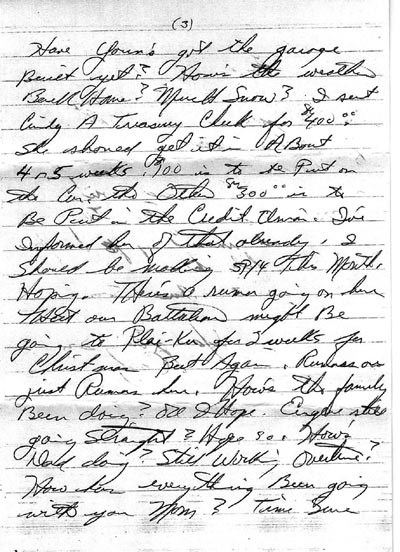 (3)
Have Youns got the garage
Built yet? How's the weather
Back Home? Much Snow? I sent
Cindy A Treasury Check for $400.00
She should get it in ABout
4 or 5 weeks. $100 is to be Put on
the Car, the Other $300.00 is to
Be Put in the Credit Union. I've
Informed her of that already. I
Should be making SP/4 This Month.
Hoping. There's a rumor going on here
that our Battalion might Be
going to Plei-Ku for 2 weeks for
Christmas But Again, Rumors are
just Rumors here. How's the family
Been doing? I Hope. Eugene still
going Straight? Hope so. How's
Dad doing? Still Working Overtime?
How has everything Been going
with you Mom? Time Sure